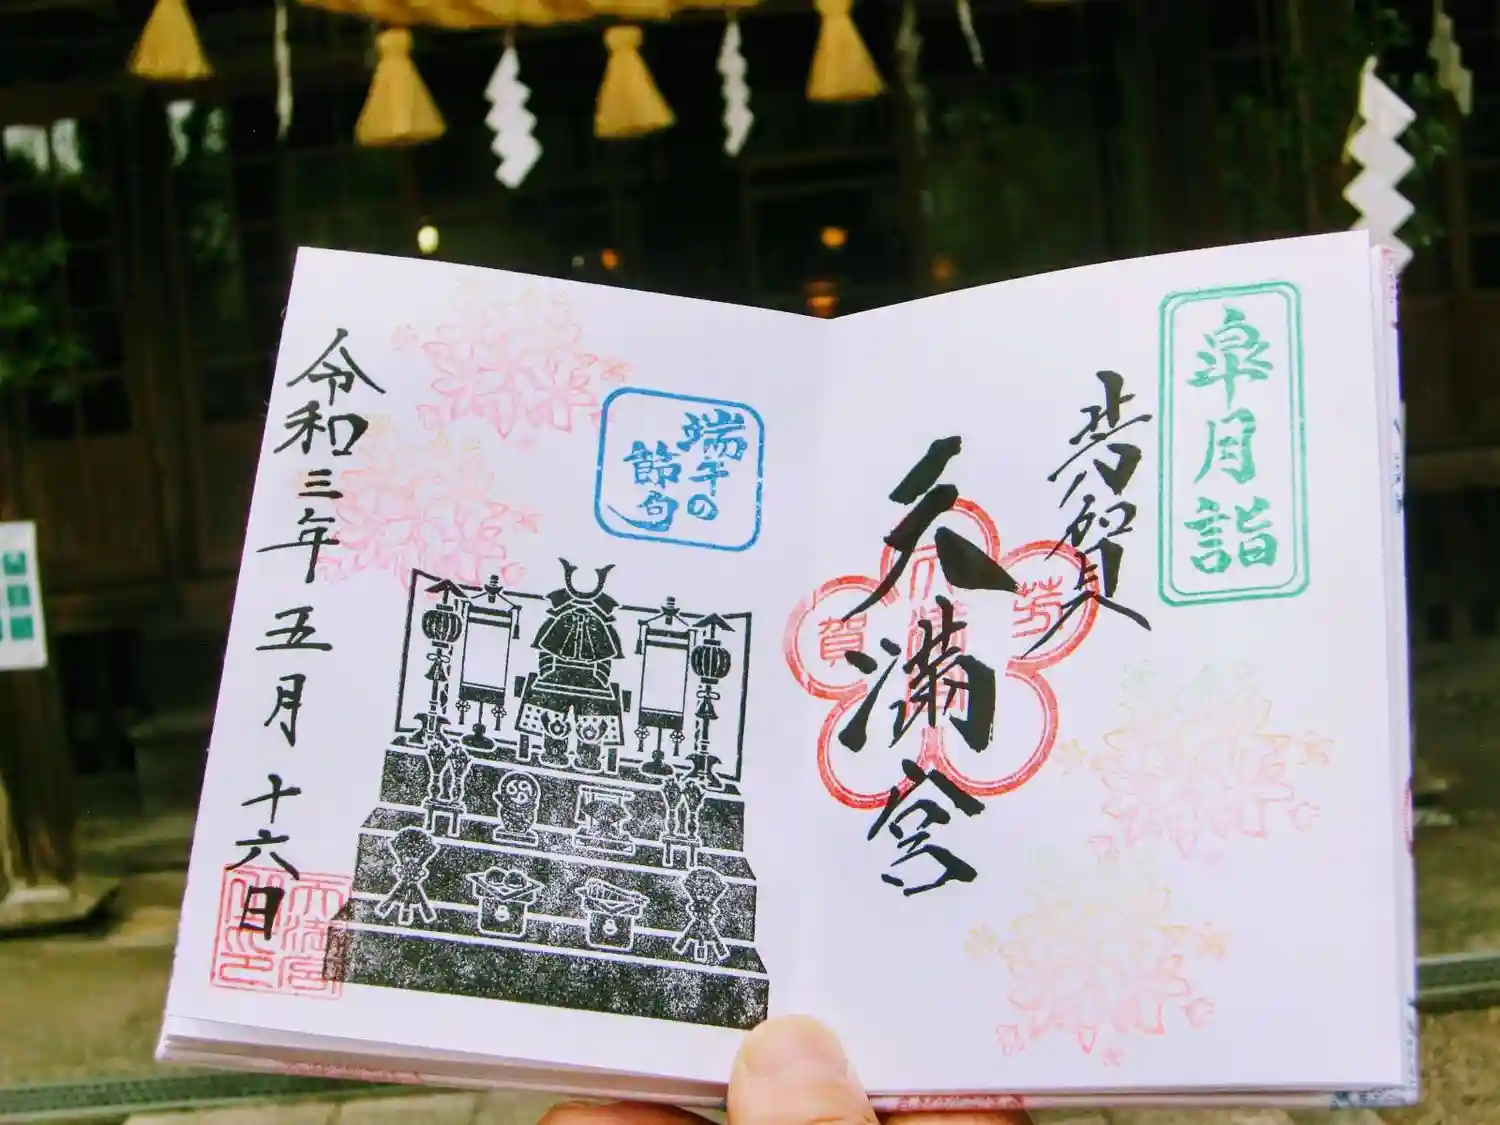 皐月詣
芳賀
天満宮
芳賀
天満宮
端午の
節句
令和三年五月十六日
天満宮